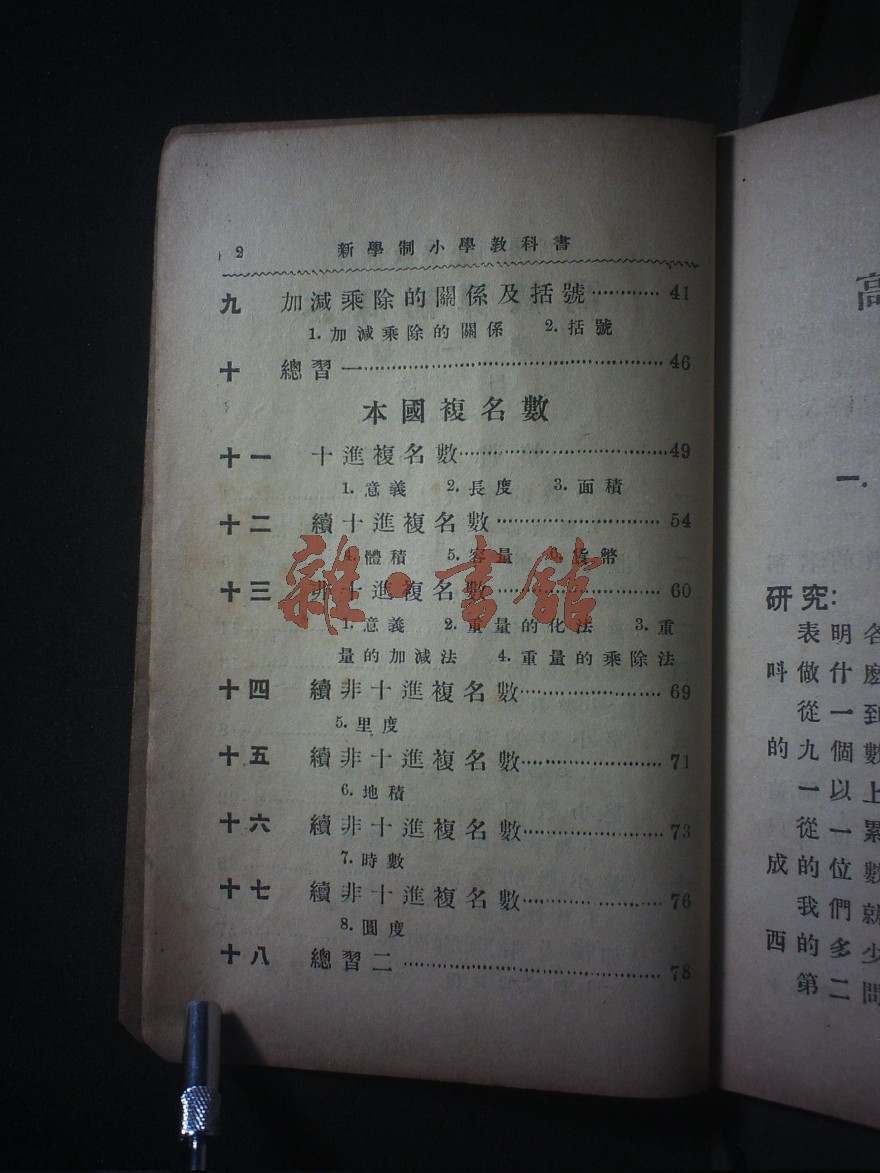 2 新學制小學教科書
九 加減乘除的關係及括號………… 41
1. 加減乘除的關係 2. 括號
十 總習一………………………………46
本國複名數
十一 十進複名數……………………49
1. 意義 2. 長度 3. 面積
十二 續十進複名數………………… 54
4. 體積 5. 容量 6. 貨幣
十三 非十進複名數………………… 60
1. 意義 2. 重量的化法 3. 重
量的加減法 4. 重量的乘除法
十四 續非十進複名數……………… 69
5. 里度
十五 續非十進複名數……………… 71
6. 地積
十六 續非十進複名數……………… 73
7. 時數
十七 續非十進複名數……………… 76
8. 圓度
十八 總習二 ………………………… 78
雜·書館
高
一.
研究:
表明各
叫做什麼
從一到
的九個數
一以上
從一累
成的位數
我們就
西的多少
第二問